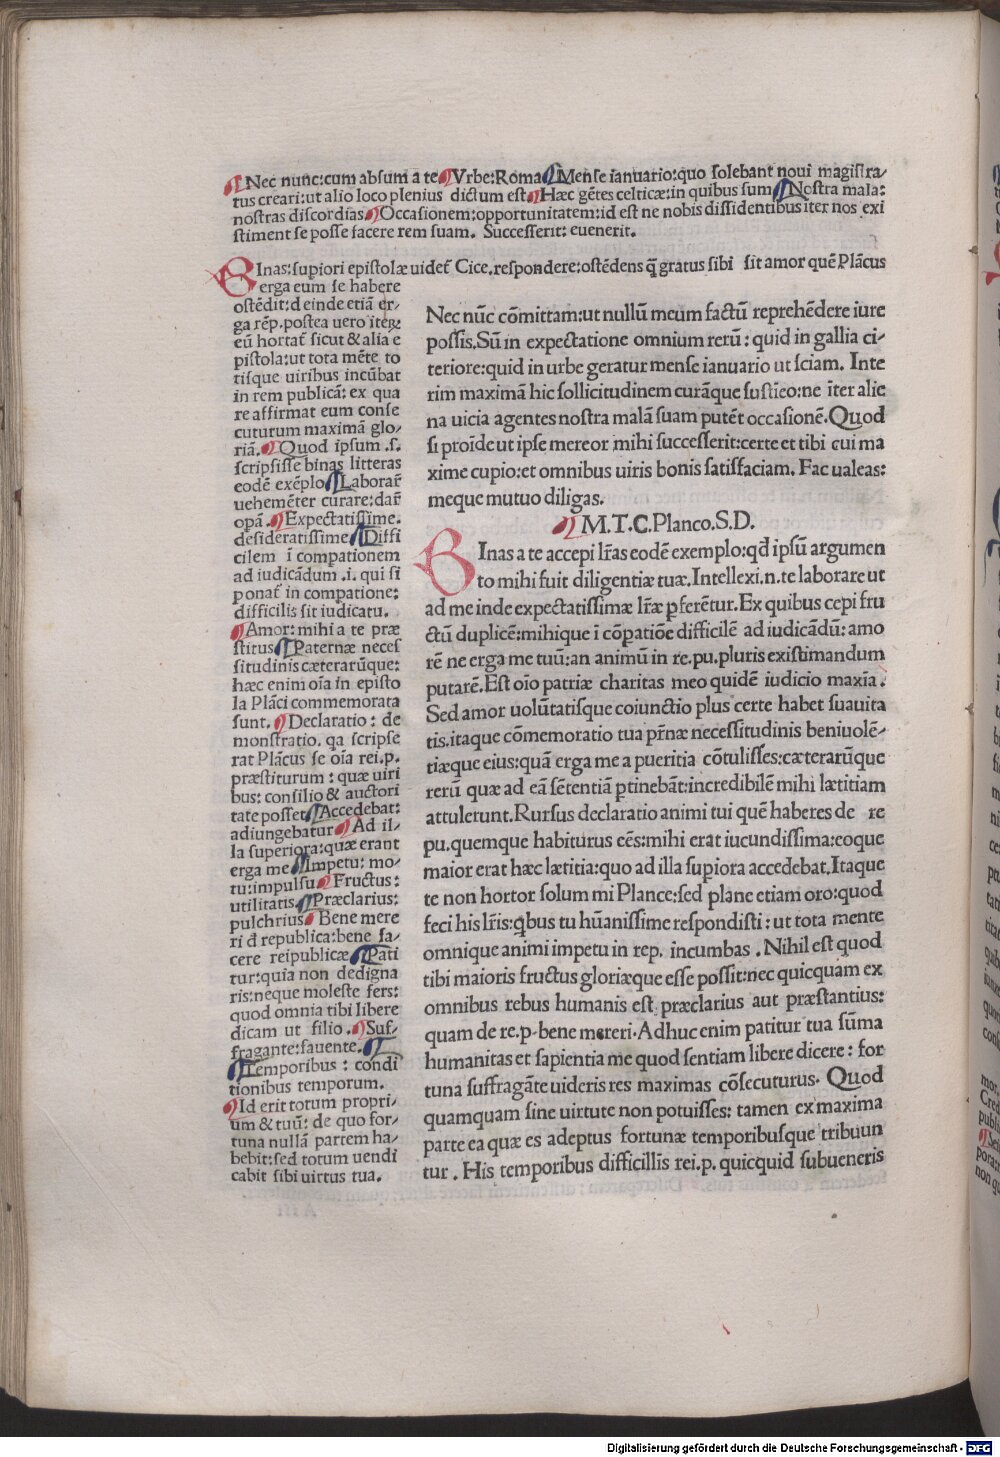 Nec nunc: cum absum a te Vrbe: Roma Mense ianuario: quo solebant noui magistra/
tus creari: ut alio loco plenius dictum est Hæc gētes celticæ: in quibus sum Nostra mala:
nostras discordias Occasionem: opportunitatem: id est ne nobis dissidentibus iter nos exi
stiment se posse facere rem suam. Successerit: euenerit.
BInas: supiori epistolæ uidet̄ Cice. respondere: ostēdens q̄ gratus sibi sit amor quē Plācus
erga eum se habere
ostēdit: deinde etiā er/
ga rēp. postea uero iteꝝ
eū hortat̄ sicut & alia e
pistola: ut tota mēte to
tisque uiribus incūbat
in rem publicā: ex qua
re affirmat eum conse
cuturum maximā glo/
riā. Quod ipsum .s.
scripsisse binas litteras
eodē exēplo Laborar̄
uehemēter curare: dar̄
opā. Expectatissime.
desideratissime Diffi
cilem ī compationem
ad iudicādum .i. qui si
ponat̄ in compatione:
difficilis sit iudicatu.
Amor: mihi a te præ
stitus Paternæ neces
situdinis cæterarūque:
hæc enim oīa in episto
la Plāci commemorata
sunt. Declaratio: de
monstratio. qa scripse
rat Plācus se oīa rei.p.
præstiturum: quæ uiri
bus: consilio & auctori
tate posset Accedebat:
adiungebatur Ad il/
la superiora: quæ erant
erga me Impetu: mo/
tu: impulsu Fructus:
utilitatis Præclarius:
pulchrius Bene mere
ri d republica: bene fa/
cere reipublicæ Pati
tur: quia non dedigna
ris: neque moleste fers:
quod omnia tibi libere
dicam ut filio. Suf/
fragante: fauente.
Temporibus: condi
tionibus temporum.
Id erit totum propri/
um & tuū: de quo for/
tuna nullā partem ha/
bebit: sed totum uendi
cabit sibi uirtus tua.
Nec nūc cōmittam: ut nullū meum factū reprehēdere iure
possis. Sū in expectatione omnium rerū: quid in gallia ci/
teriore: quid in urbe geratur mense ianuario ut sciam. Inte
rim maximā hic sollicitudinem curāque sustīeo: ne īter alie
na uicia agentes nostra malā suam putēt occasionē. Quod
si proīde ut ipse mereor mihi successerit: certe et tibi cui ma
xime cupio: et omnibus uiris bonis satisfaciam. Fac ualeas:
meque mutuo diligas.
M.T.C. Planco. S.D.
BInas a te accepi lr̄as eodē exemplo: qd̄ ipsū argumen
to mihi fuit diligentiæ tuæ. Intellexi .n. te laborare ut
ad me inde expectatissimæ lr̄æ pferētur. Ex quibus cepi fru
ctū duplicē: mihique ī cōpatiōe difficilē ad iudicādū: amo
rē ne erga me tuū: an animū in re.pu. pluris existimandum
putarē. Est oīo patriæ charitas meo quidē iudicio maxīa.
Sed amor uolūtatisque coiunctio plus certe habet suauita
tis. itaque cōmemoratio tua pr̄næ necessitudinis beniuolē/
tiæque eius: quā erga me a pueritia cōtulisses: cæterarūque
rerū quæ ad eā sētentiā ptinebāt: incredibilē mihi lætitiam
attulerunt. Rursus declaratio animi tui quē haberes de re
pu. quemque habiturus eēs: mihi erat iucundissima: eoque
maior erat hæc lætitia: quo ad illa supiora accedebat. Itaque
te non hortor solum mi Plance: sed plane etiam oro: quod
feci his lr̄is: qbus tu hūanissime respondisti: ut tota mente
omnique animi impetu in rep. incumbas. Nihil est quod
tibi maioris fructus gloriæque esse possit: nec quicquam ex
omnibus rebus humanis est præclarius aut præstantius:
quam de re.p. bene mereri. Adhuc enim patitur tua sūma
humanitas et sapientia me quod sentiam libere dicere: for
tuna suffragāte uideris res maximas cōsecuturus. Quod
quamquam sine uirtute non potuisses: tamen ex maxima
parte ea quæ es adeptus fortunæ temporibusque tribuun
tur. His temporibus difficillis rei.p. quicquid subueneris
Digitalisierung gefördert durch die Deutsche Forschungsgemeinschaft - DFG